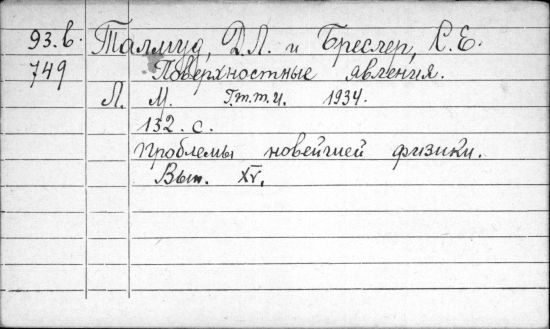 93.b. Талмуд, Д.Л. и Бреслер, С.Е.
749 Поверхностные явления.
Л. М. Г.т.т.и. 1934.
132. с.
Проблемы новейшей физики.
Вып. XV.